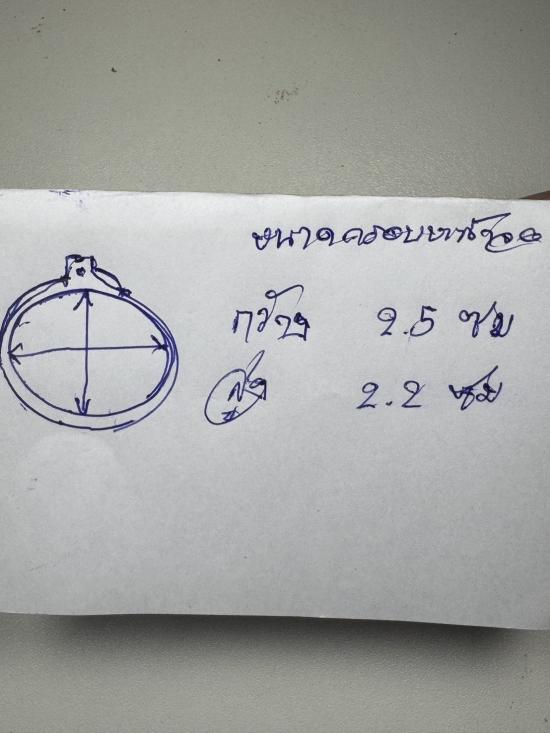 ขนาดครอบหน้าจอ
กว้าง 2.5 ซม
สูง 2.2 ซม